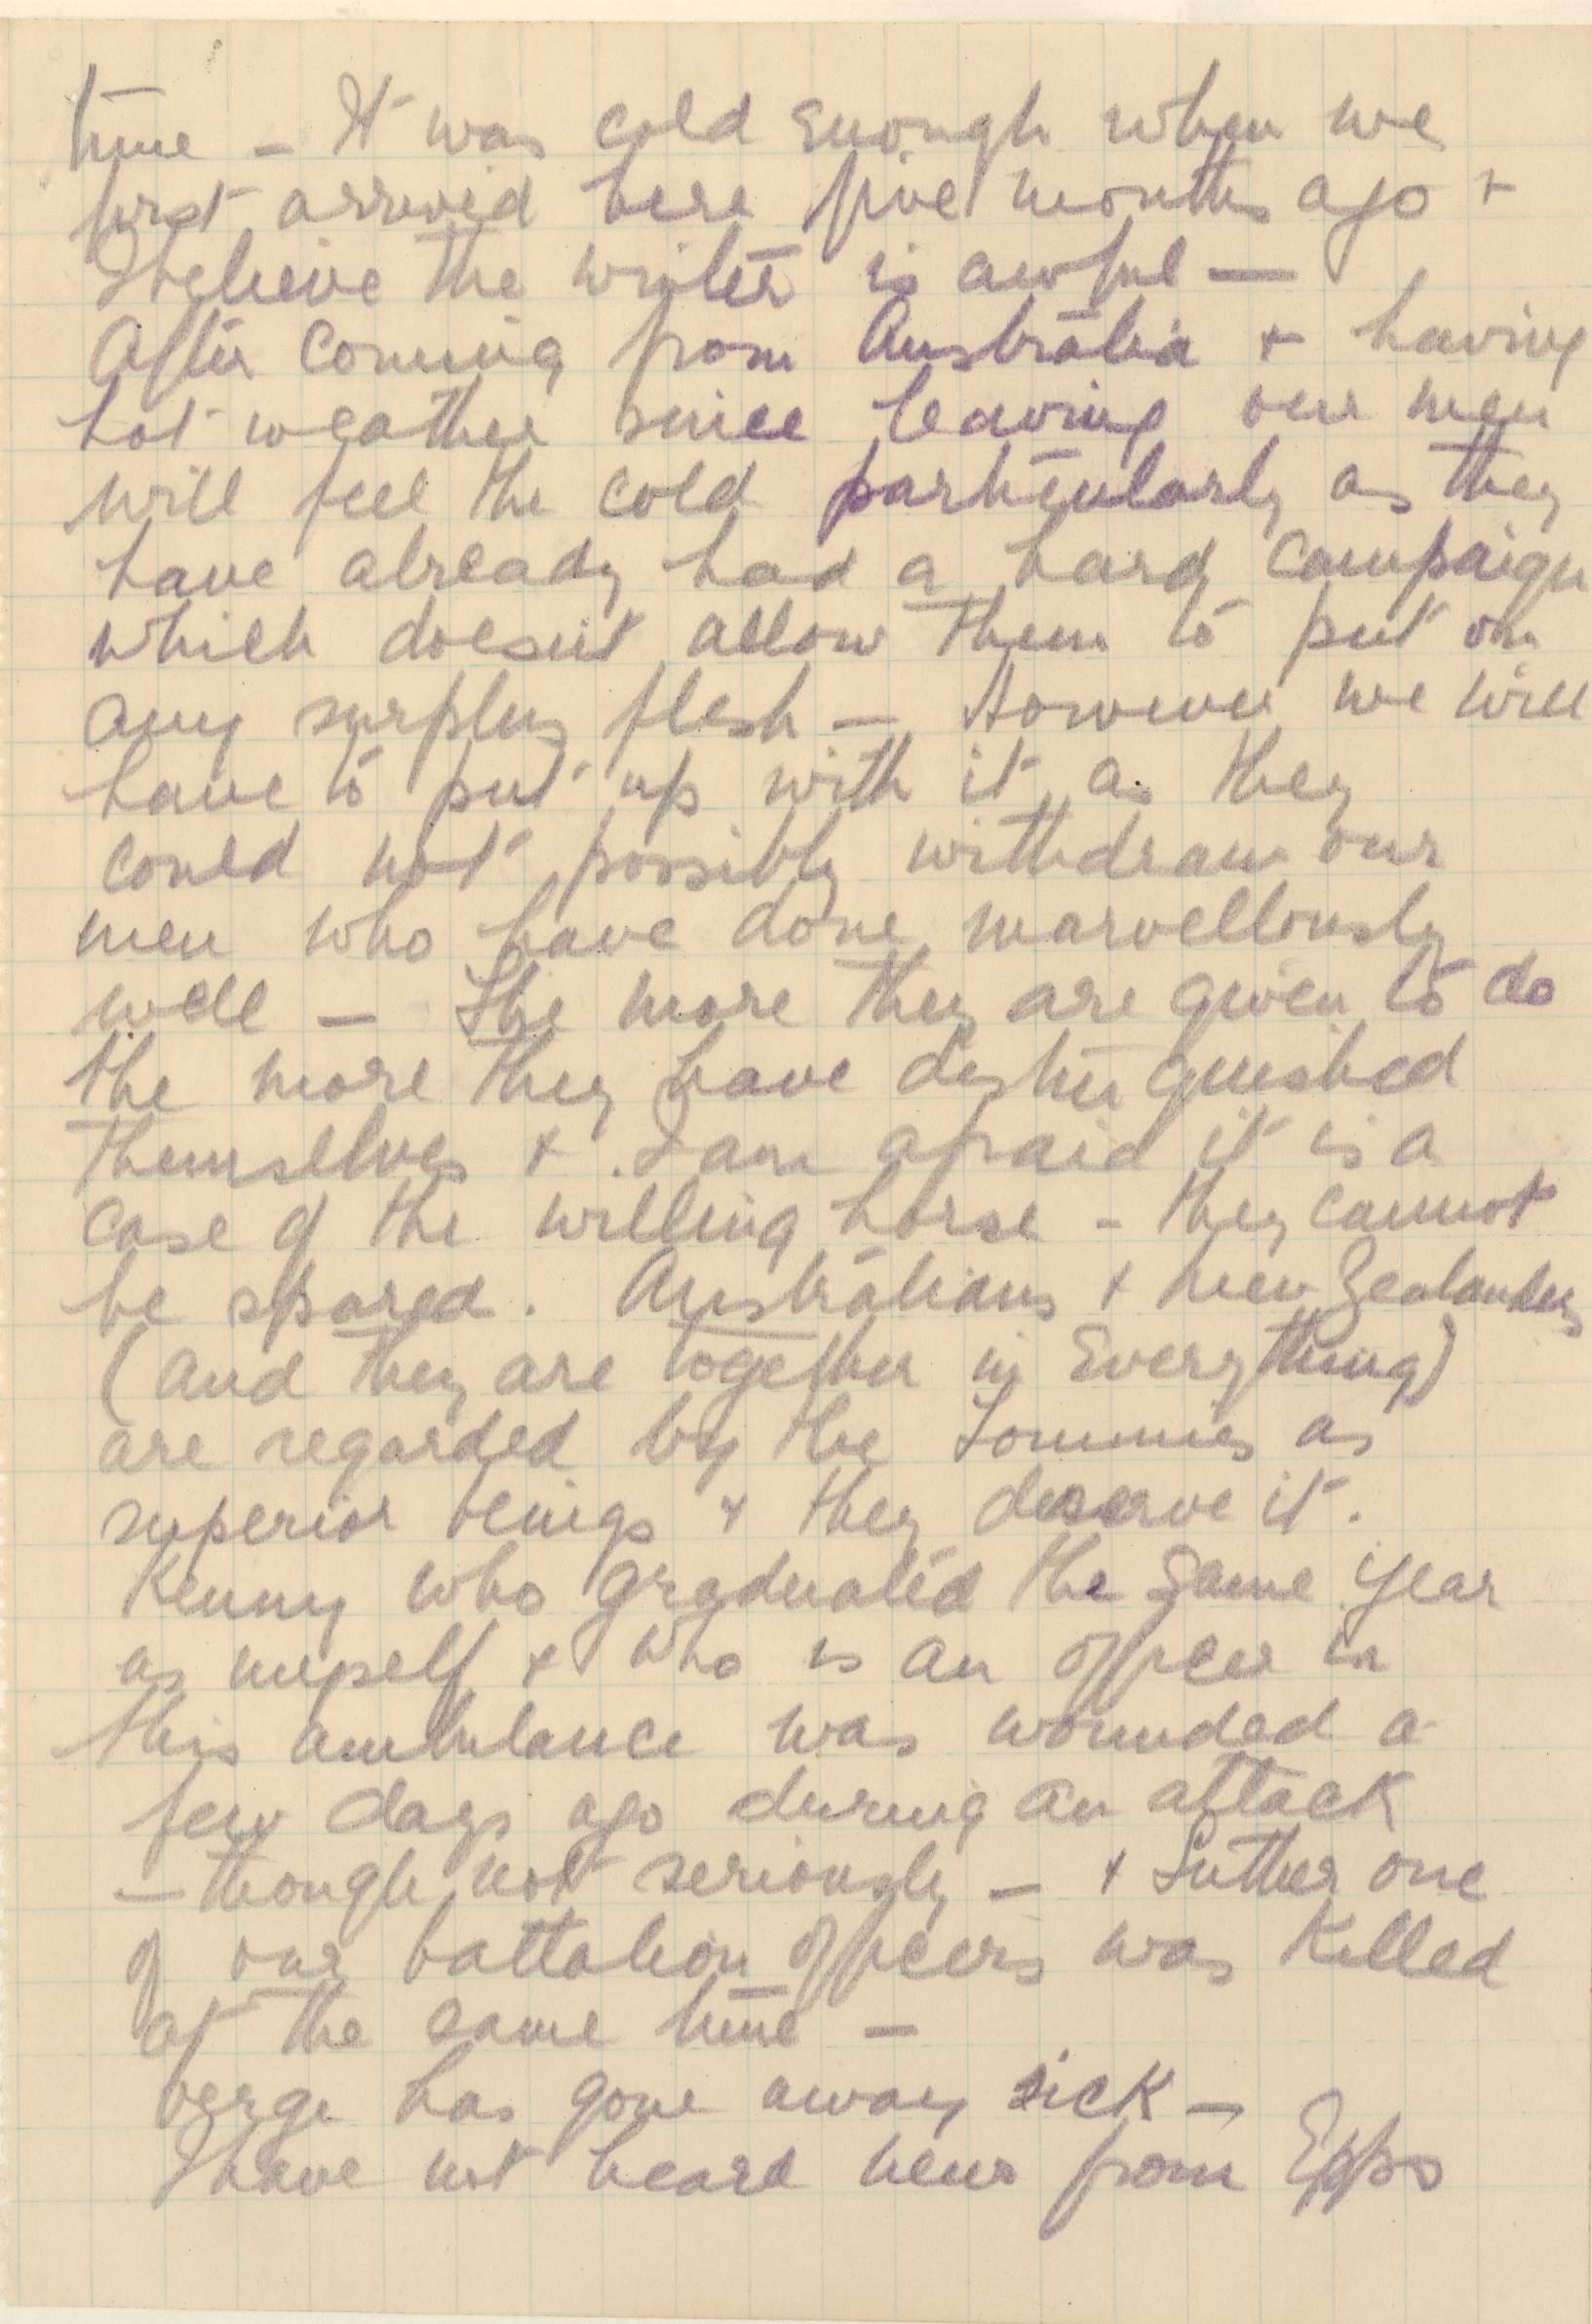 time – It was cold enough when we
first arrived here five months ago +
I believe the winter is awful —
After coming from Australia + having
hot weather since leaving our men
will feel the cold particularly as they
have already had a hard campaign
which doesn't allow them to put on
any surplus flesh – However we will
have to put up with it as they
could not possibly withdraw our
men who have done marvellously
well – The more they are given to do
the more they have distinguished
themselves + I am afraid it is a
case of the willing horse – they cannot
be spared. Australians + New Zealanders
(and they are together in Everything)
are regarded by the Tommies as
superior beings + they deserve it.
Kenny who graduated the same year
as myself + who is an officer in
this ambulance was wounded a
few days ago during an attack
– though not seriously – +  one
of our battalion officers was killed
at the same time –
Verge has gone away sick –
I have not heard news from Epps